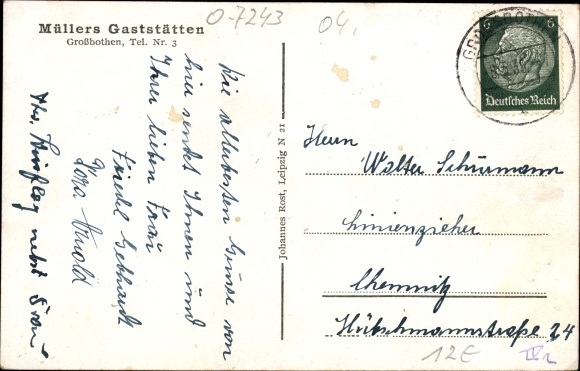 Müllers Gaststätten
Großbothen, Tel. Nr. 3
O-7243
04.
Die allerbesten Grüsse von
hier sendet Ihnen und
Ihrer lieben Frau
Friedel Gebhardt
Lora Arnold
nebst Frau
Johannes Rost, Leipzig N 21
6
6
Deutsches Reich
Herrn
Walter Schürmann
Linienzieher
Chemnitz
Hübschmannstraße 24
12E